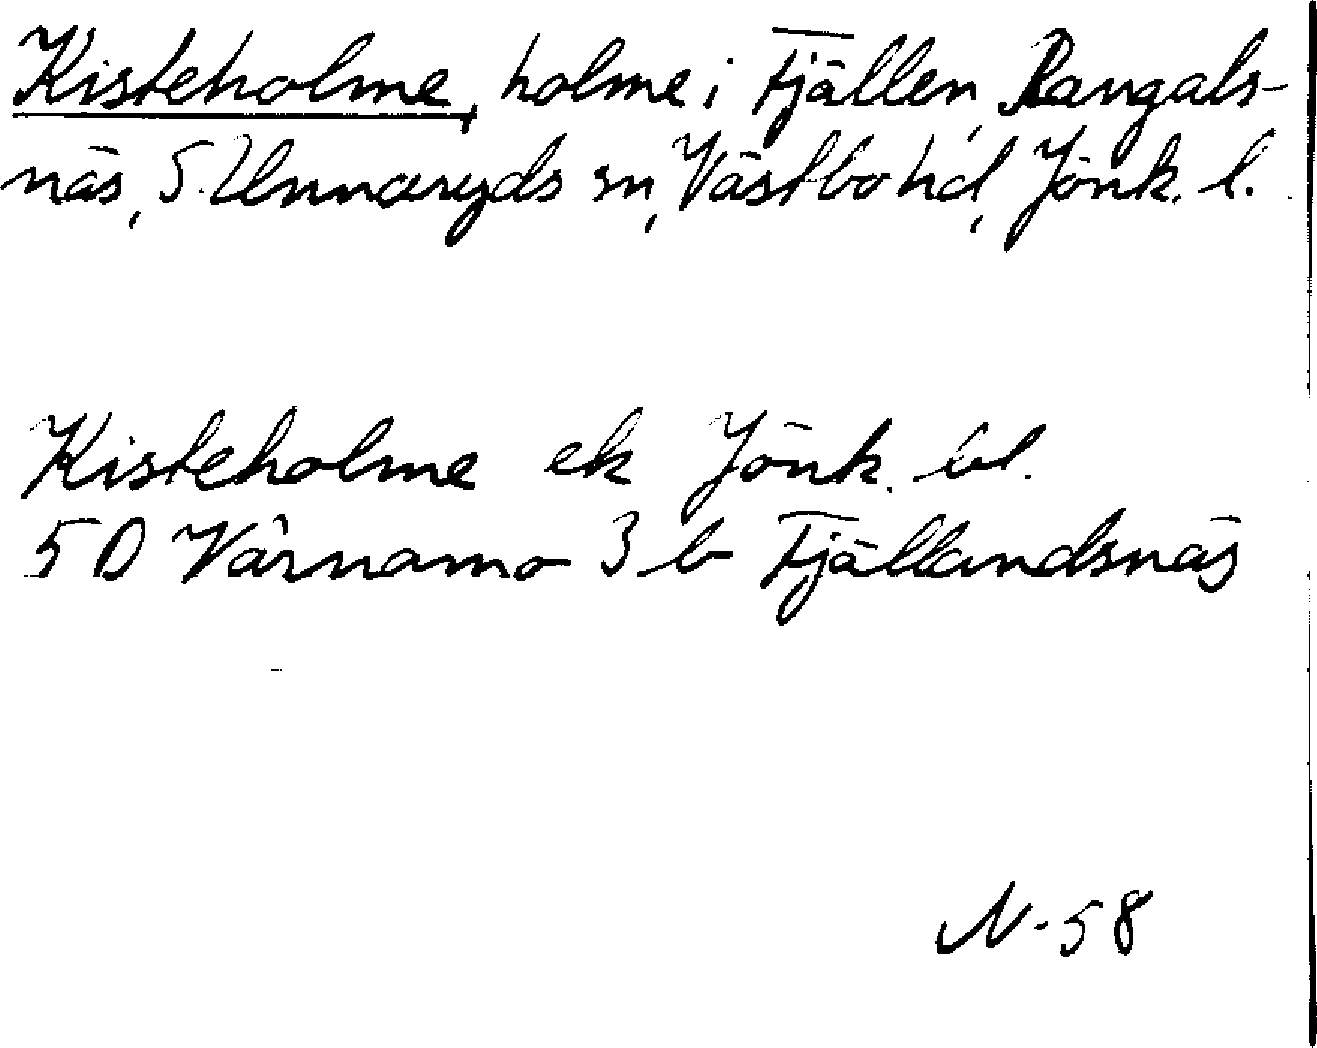 Kisteholme, holme i Fjällen, Rangals-
näs, S. Unnaryds sn, Västbo hd, Jönk. l.
Kisteholme ek Jönk. bl.
5D Värnamo 3 b Fjällandsnäs
N-58